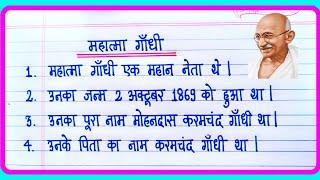 महात्मा गाँधी
1. महात्मा गाँधी एक महान नेता थे |
2. उनका जन्म 2 अक्टूबर 1869 को हुआ था |
3. उनका पूरा नाम मोहनदास करमचंद गाँधी था |
4. उनके पिता का नाम करमचंद गाँधी था |